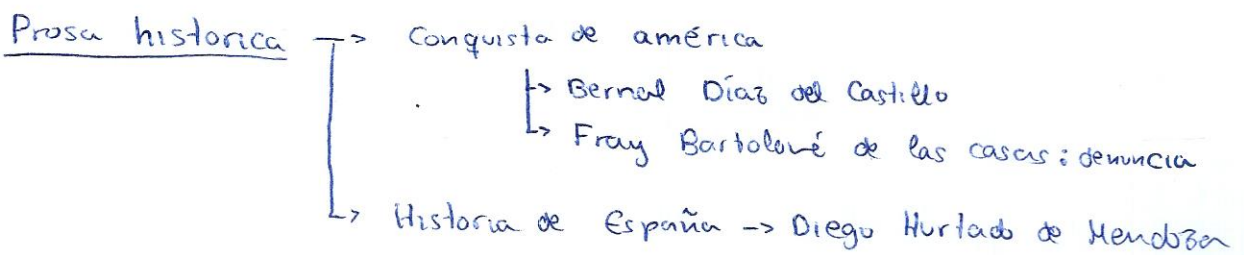 Prosa historica → Conquista de américa
→ Bernal Díaz del Castillo
→ Fray Bartolomé de las casas: denuncia
→ Historia de España -> Diego Hurtado de Mendoza